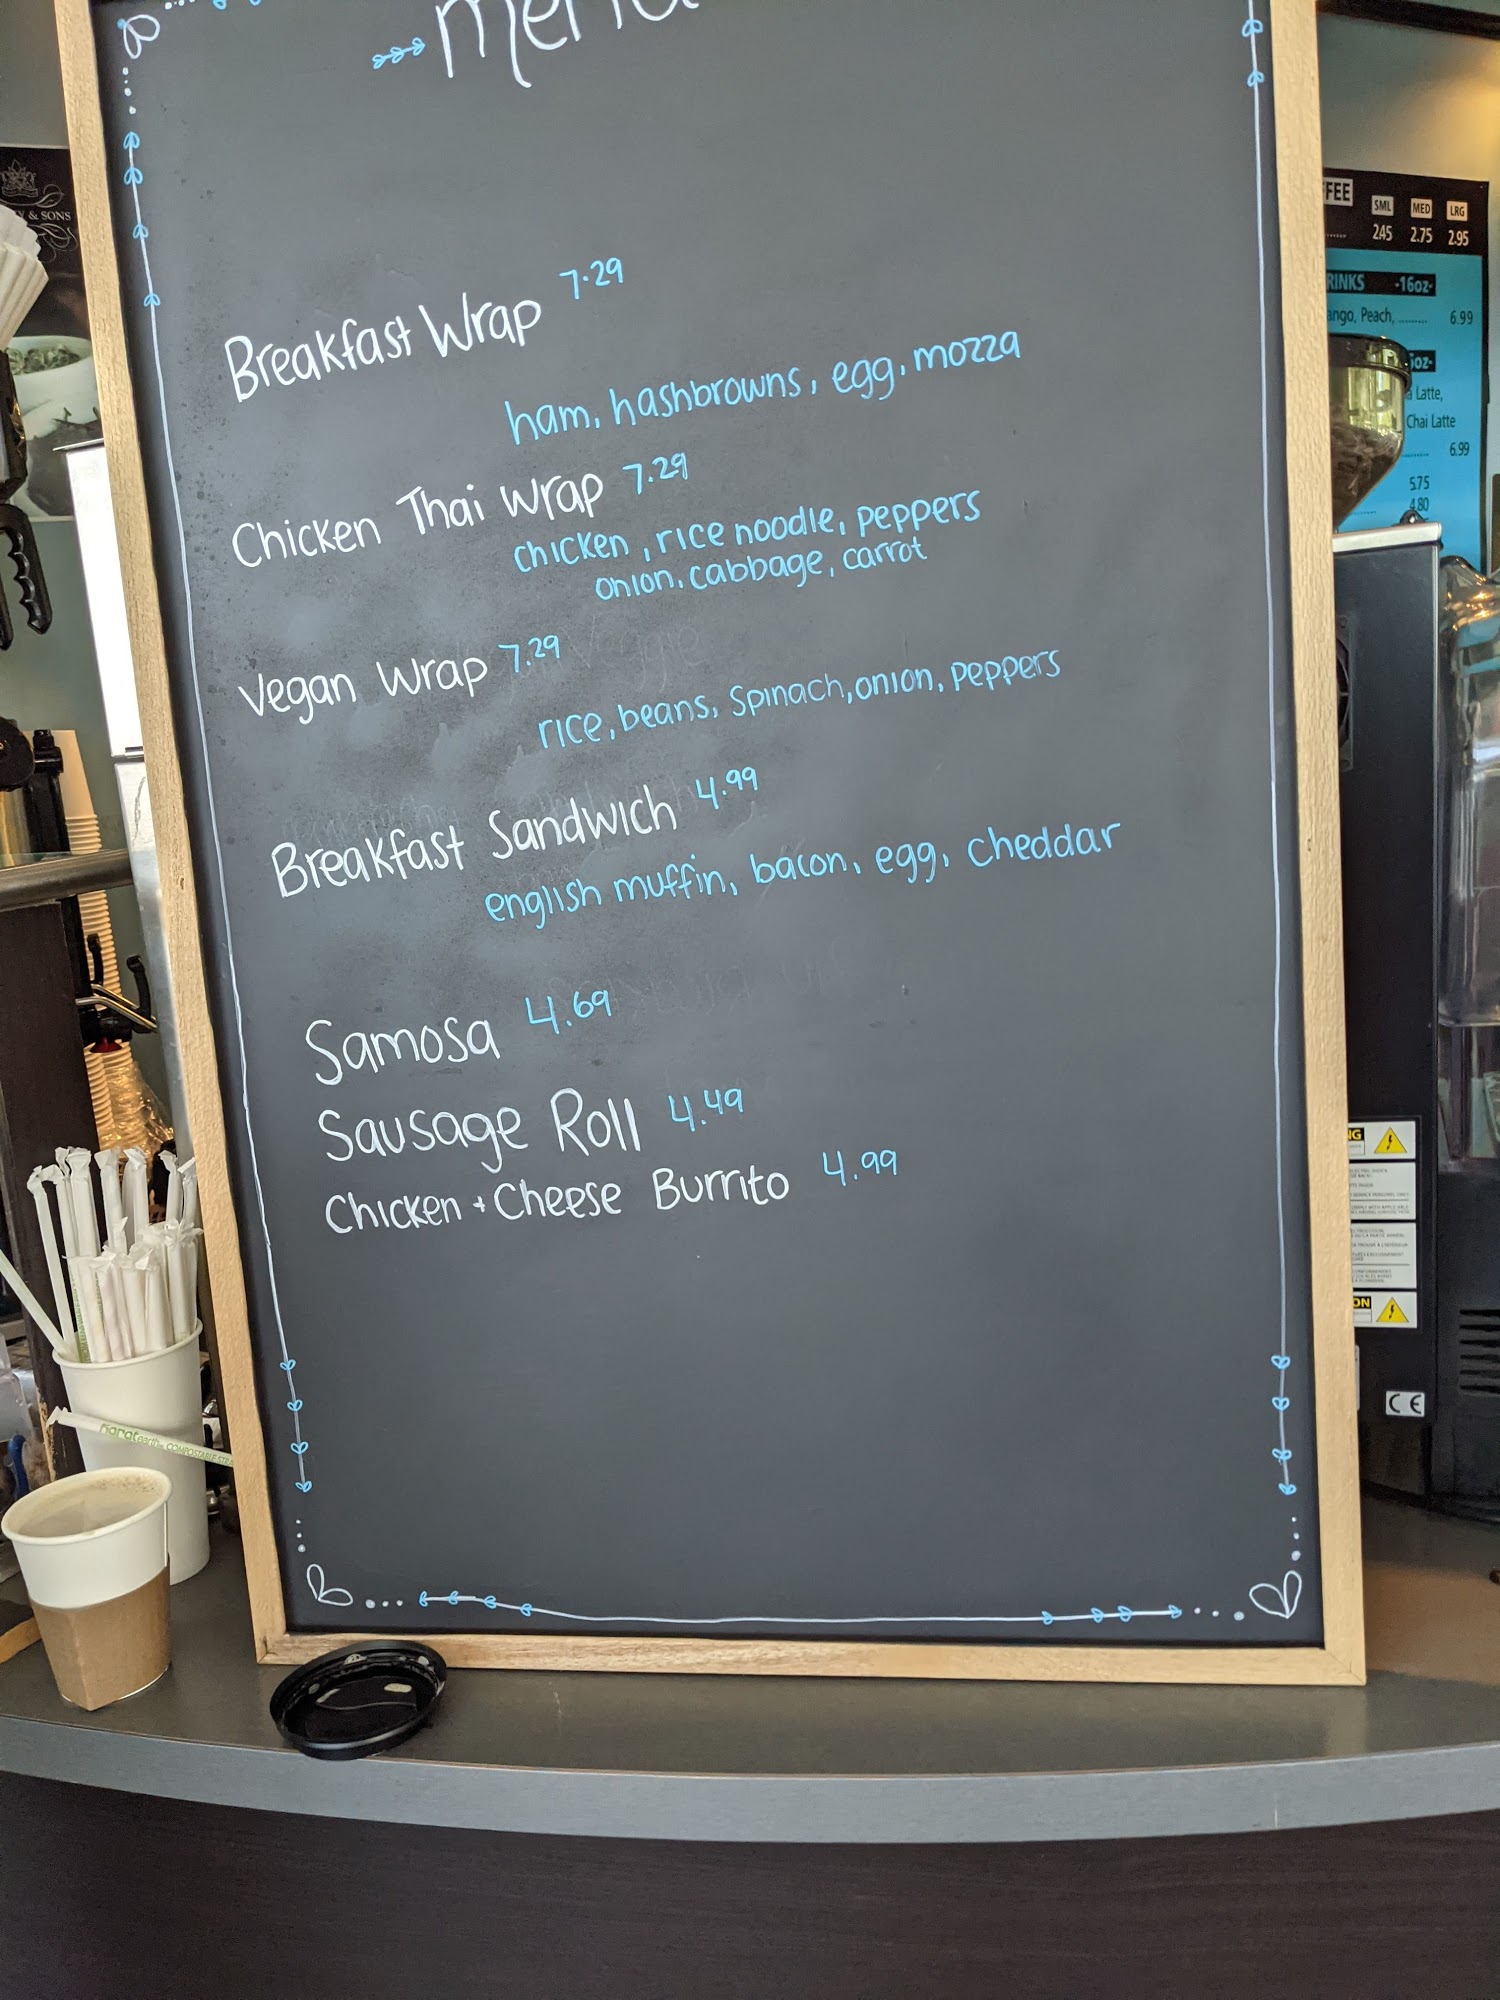 menu
Breakfast Wrap 7.29
ham, hashbrowns, egg, mozza
Chicken Thai Wrap 7.29
chicken, rice noodle, peppers
onion, cabbage, carrot
Vegan Wrap 7.29
rice, beans, spinach, onion, peppers
Breakfast Sandwich 4.99
english muffin, bacon, egg, cheddar
Samosa 4.69
Sausage Roll 4.49
Chicken + Cheese Burrito 4.99
& SONS
FEE SML MED LRG
2.45 2.75 2.95
RINKS -16oz-
ango, Peach, ......... 6.99
oz-
a Latte,
Chai Latte
6.99
5.75
4.80
NG
ON
CE
earth COMPOSTABLE